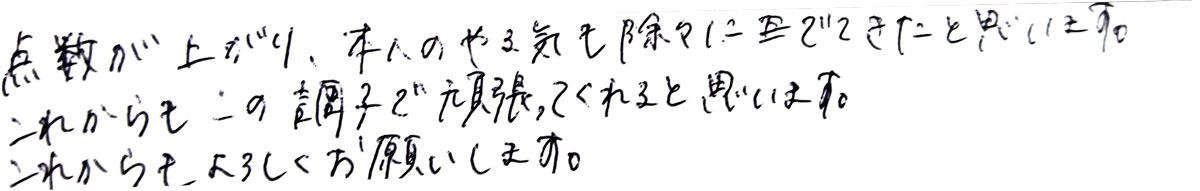 点数が上がり、本人のやる気も除々に出てきたと思います。
これからもこの調子で頑張ってくれると思います。
これからもよろしくお願いします。